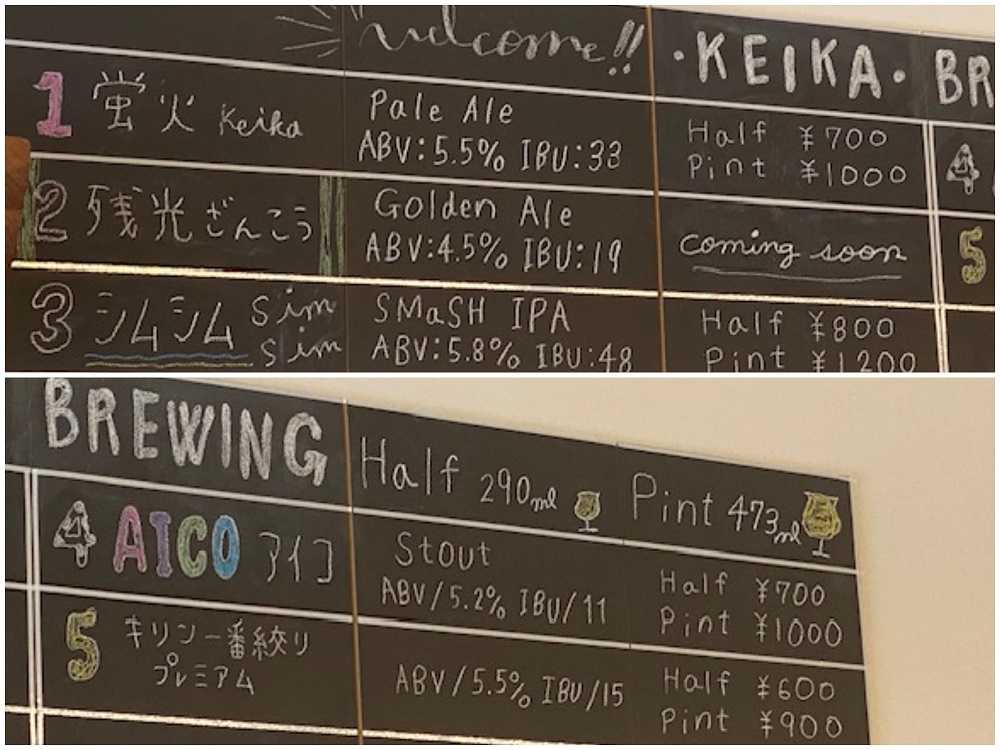 welcome!!
・KEIKA・
BR
1 蛍火 Keika
Pale Ale
ABV:5.5% IBU:33
Half ¥700
Pint ¥1000
4
2 残光 ざんこう
Golden Ale
ABV:4.5% IBU:19
coming soon
5
3 シムシム Sim
Sim
SMaSH IPA
ABV:5.8% IBU:48
Half ¥800
Pint ¥1200
BREWING
Half 290ml
Pint 473ml
4 AICO アイコ
Stout
ABV/5.2% IBU/11
Half ¥700
Pint ¥1000
5 キリン一番絞り
プレミアム
ABV/5.5% IBU/15
Half ¥600
Pint ¥900